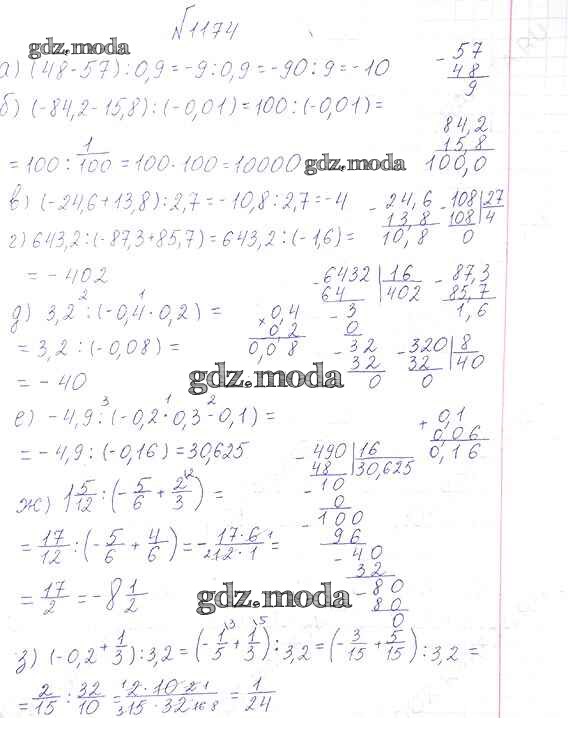 №1174
gdz.moda
а) (48-57):0,9=-9:0,9=-90:9=-10
- 57
48
9
б) (-84,2-15,8):(-0,01)=100:(-0,01)=
84,2
15,8
100,0
=100:1/100=100·100=10000
gdz.moda
в) (-24,6+13,8):2,7=-10,8:2,7=-4
- 24,6
13,8
10,8
- 108|27
108|4
0
г) 643,2:(-87,3+85,7)=643,2:(-1,6)=
=-402
- 6432|16
64|402
- 3
0
- 32
32
0
- 87,3
85,7
1,6
2 1
д) 3,2:(-0,4·0,2)=
× 0,4
0,2
0,08
=3,2:(-0,08)=
- 320|8
32|40
0
=-40
gdz.moda
3 1 2
е) -4,9:(-0,2·0,3-0,1)=
+ 0,1
0,06
0,16
=-4,9:(-0,16)=30,625
- 490|16
48|30,625
- 10
0
- 100
96
- 40
32
- 80
80
0
ж) 1 5/12:(-5/6+2/3)=
=17/12:(-5/6+4/6)=-17·6/12·1=
=17/2=-8 1/2
gdz.moda
з) (-0,2+1/3):3,2=(-1/5+1/3):3,2=(-3/15+5/15):3,2=
=2/15:32/10=2·10/15·32=1/24